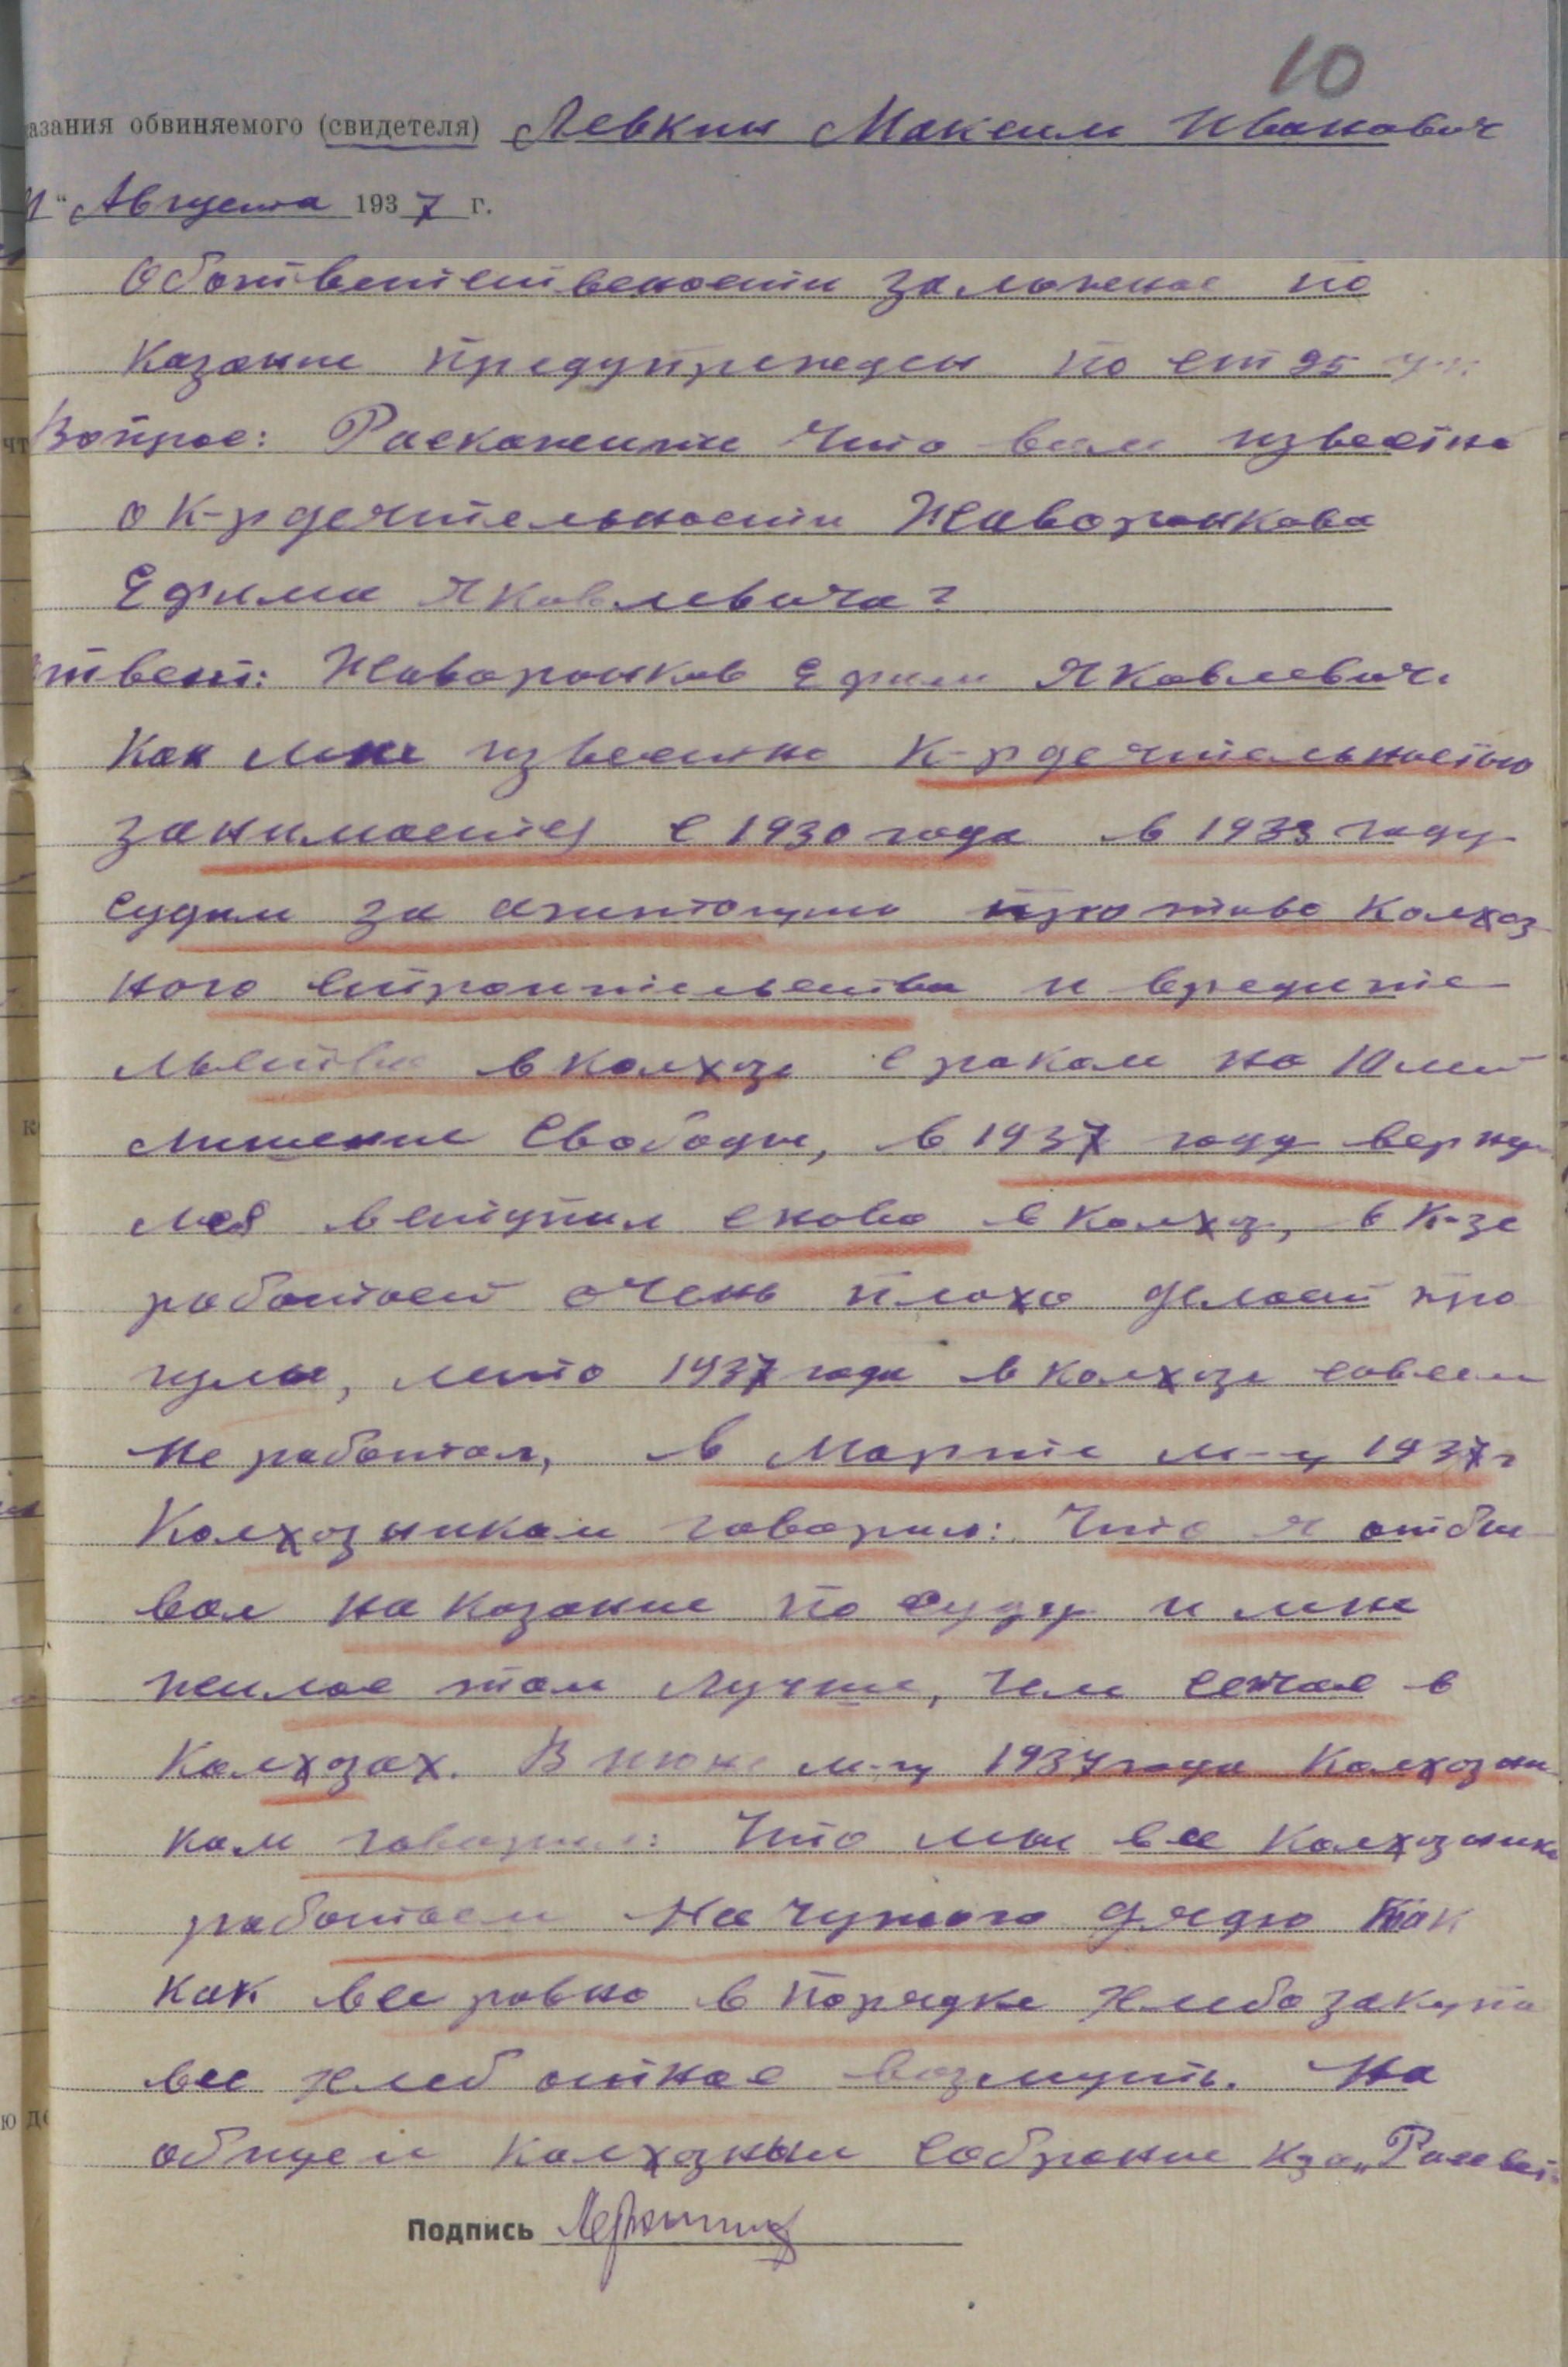 10
азания обвиняемого (свидетеля) Левкин Максим Иванович
" Августа 1937 г.
Обответственности заложное по
казание предупрежден по ст 95 ук
Вопрос: Раскажите что вам известно
о к-р деятельности Жаворонкова
Ефима Яковлевича?
твет: Жаворонков Ефим Яковлевич.
Как мне известно к-р деятельностью
занимается с 1930 года в 1933 году
судим за агитацию против колхоз
ного строительства и вредите-
льства в колхозе сроком на 10 лет
лишение свободы, в 1937 году верну
лся вступил снова в колхоз, в к-зе
работает очень плохо делает про
гулы, лето 1937 года в колхозе совсем
не работал, в Марте м-ц 1937 г
Колхозникам говорил: Что я отбы
вал наказание по суду и мне
жилос там лучше, чем сечас в
колхозах. В июне м-цу 1937 года Колхозни
кам говорил: Что мы все колхозники
работаем на чужого дядю так
как все равно в порядке хлебозакупа
все хлеб отнас возмуть. На
общем колхозным собрание кза „Рассвет
Подпись